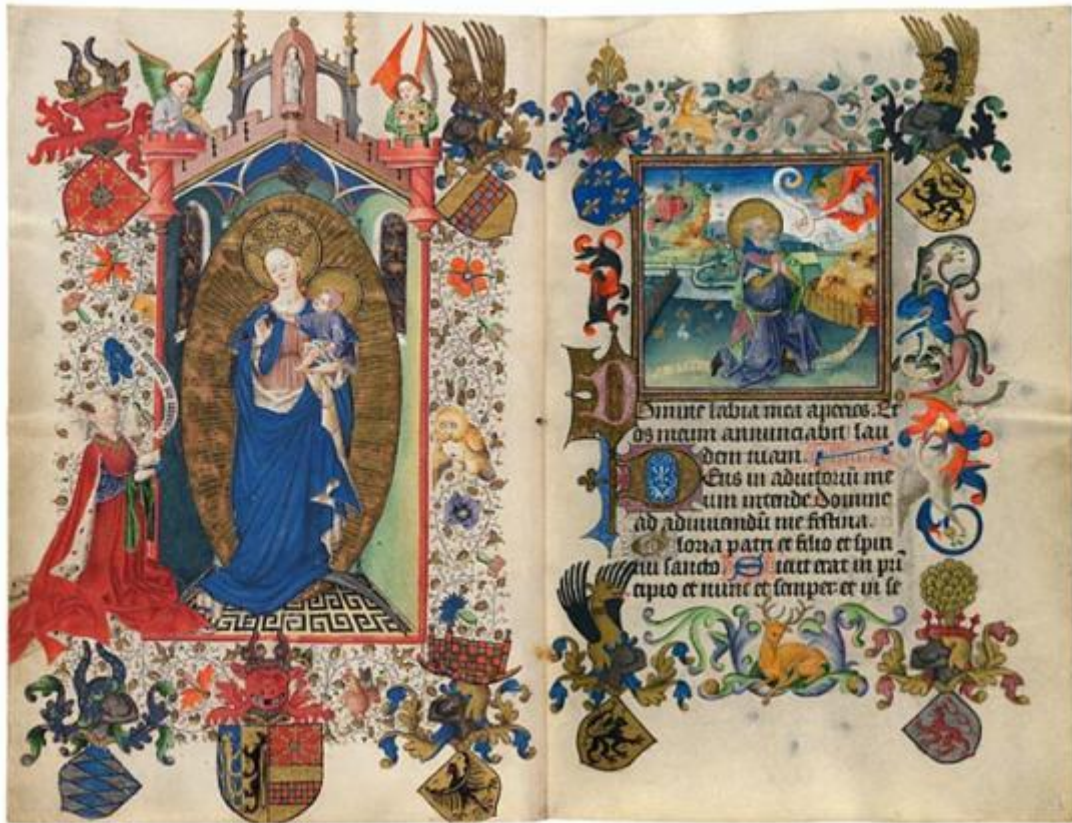 Domine labia mea aperies. Et
os meum annunciabit lau
dem tuam.
Deus in adiutoriū me
um intende Domine
ad adiuuandū me festina.
Gloria patri et filio et spiri
tui sancto. Sicut erat in pri
cipio et nunc et semper et in se